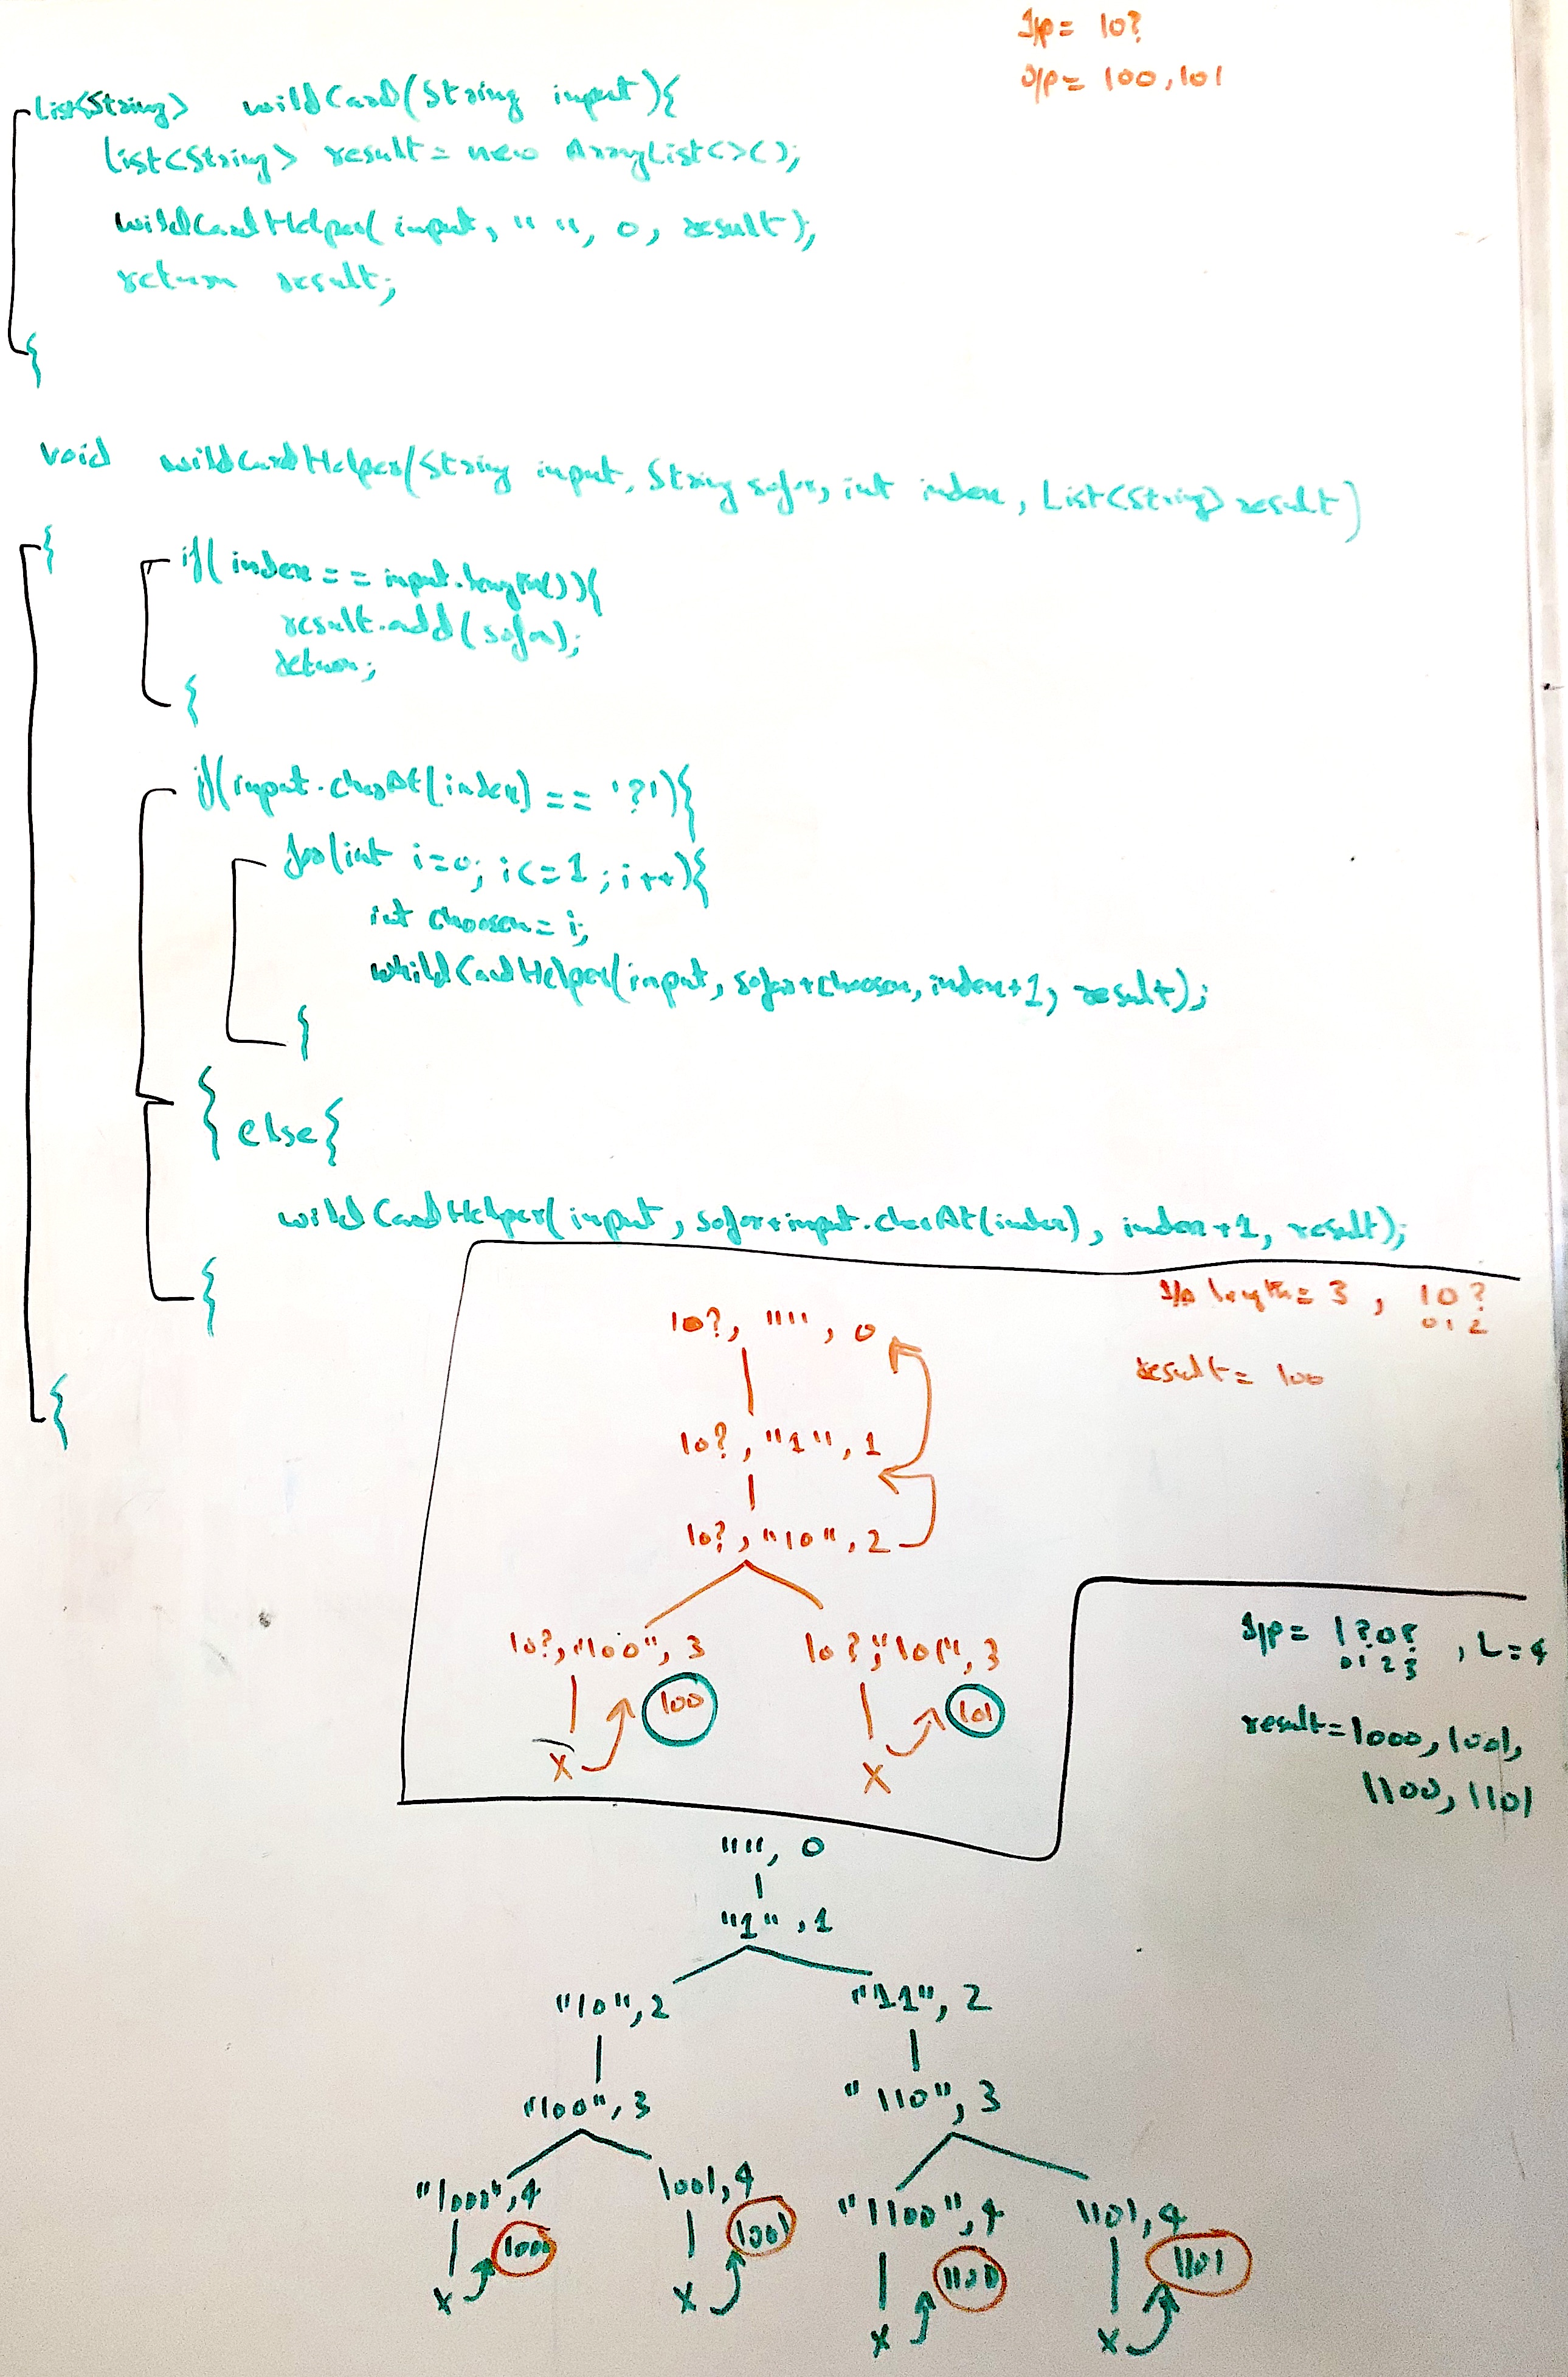 I/p = 10?
O/p = 100, 101
List<String> wildCard(String input){
List<String> result = new ArrayList<>();
wildCardHelper(input, " ", 0, result);
return result;
}
void wildCardHelper(String input, String sofar, int index, List<String> result)
{
if(index == input.length()){
result.add(sofar);
return;
}
if(input.charAt(index) == '?'){
for(int i=0; i<=1; i++){
int choosen = i;
whildCardHelper(input, sofar+choosen, index+1, result);
}
} else{
wildCardHelper(input, sofar+input.charAt(index), index+1, result);
}
}
I/p length = 3, 10?
0 1 2
result = 100
10?, "", 0
10?, "1", 1
10?, "10", 2
10?, "100", 3 10?, "101", 3
100 101
X X
I/p = 1?0?, L=4
0 1 2 3
result = 1000, 1001,
1100, 1101
"", 0
"1", 1
"10", 2 "11", 2
"100", 3 "110", 3
"1000", 4 1001, 4 "1100", 4 1101, 4
1000 1001 1100 1101
X X X X